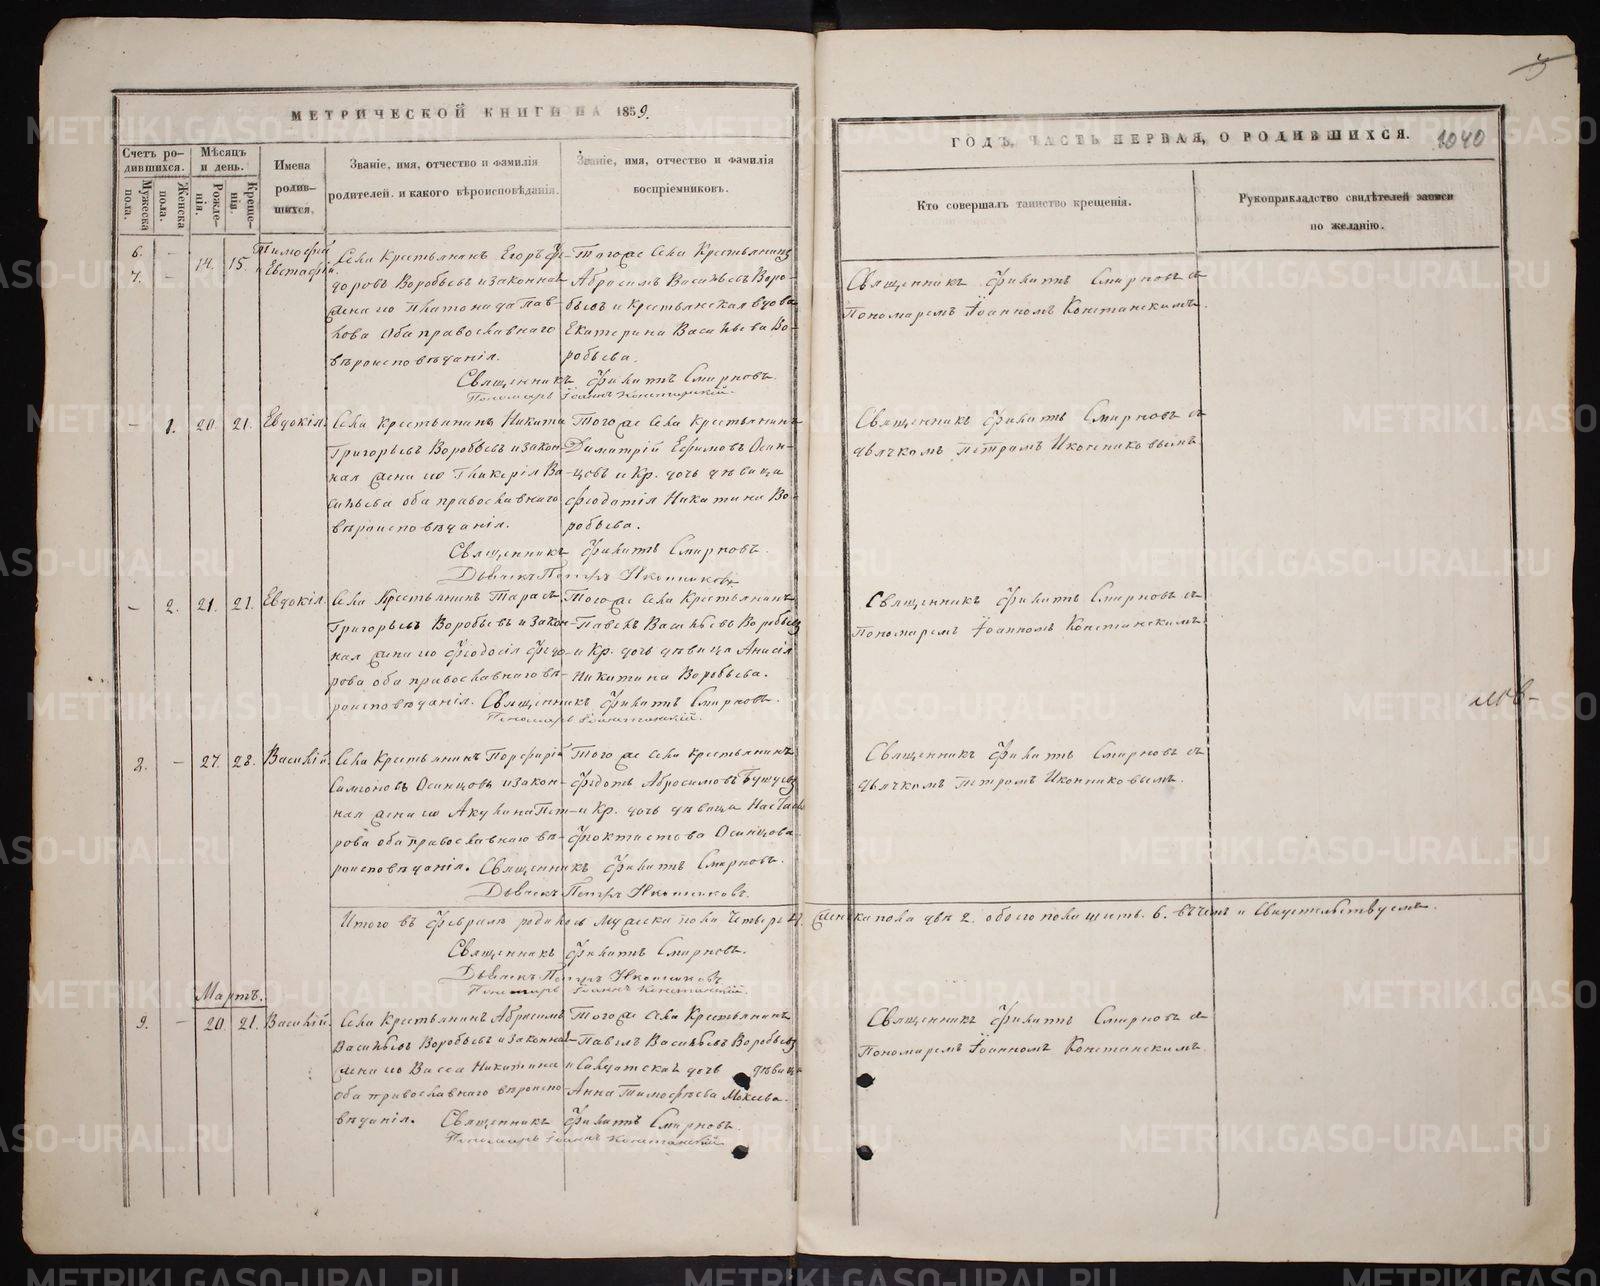 МЕТРИЧЕСКОЙ КНИГИ НА 1859.
Счетъ родившихся.
Мѣсяцъ и день.
Имена родившихся.
Званіе, имя, отчество и фамилія родителей, и какого вѣроисповѣданія.
Званіе, имя, отчество и фамилія воспріемниковъ.
Мужеска пола.
Женска пола.
Рожденія.
Крещенія.
6. – 14. 15. Тимофей
7. – и Евстафій.
Села Крестьянинъ Егоръ Фе-
доровъ Воробьевъ и законная
жена его Платонида Пав-
лова оба православнаго
вѣроисповѣданія.
Того же Села Крестьянинъ
Абросимъ Васильевъ Воро-
бьевъ и Крестьянская вдова
Екатерина Васильева Во-
робьева.
Священникъ Филатъ Смирновъ.
Пономарь Іоаннъ Констанскій.
– 1. 20. 21. Евдокія.
Села Крестьянинъ Никита
Григорьевъ Воробьевъ и закон-
ная жена его Гликерія Ва-
сильева оба православнаго
вѣроисповѣданія.
Того же Села Крестьянинъ
Димитрій Ефимовъ Осин-
цовъ и Кр. дочь дѣвица
Феодотія Никитина Во-
робьева.
Священникъ Филатъ Смирновъ.
Дьячекъ Петръ Иконниковъ
– 2. 21. 21. Евдокія.
Села Крестьянинъ Тарасъ
Григорьевъ Воробьевъ и закон-
ная жена его Феодосія Федо-
рова оба православнаго вѣ-
роисповѣданія.
Того же Села Крестьянинъ
Павелъ Васильевъ Воробьевъ
и Кр. дочь дѣвица Анисія
Никитина Воробьева.
Священникъ Филатъ Смирновъ.
Пономарь Іоаннъ Констанскій.
8. – 27. 28. Василій.
Села Крестьянинъ Порфирій
Самсоновъ Осинцовъ и закон-
ная жена его Акулина Пет-
рова оба православнаго вѣ-
роисповѣданія.
Того же Села Крестьянинъ
Федотъ Абросимовъ Бушуевъ
и Кр. дочь дѣвица Настасья
Феоктистова Осинцова.
Священникъ Филатъ Смирновъ.
Дьячекъ Петръ Иконниковъ.
Итого въ Февралѣ родилось Мужеска пола Четыре 4. Женска пола двѣ 2. обоего пола шесть. 6. въ чемъ и Свидетельствуемъ.
Священникъ Филатъ Смирновъ.
Дьячекъ Петръ Иконниковъ
Пономарь Іоаннъ Констанскій.
Мартъ.
9. – 20. 21. Василій.
Села Крестьянинъ Абросимъ
Васильевъ Воробьевъ и законная
жена его Васса Никитина
оба православнаго вѣроиспо-
вѣданія.
Того же Села Крестьянинъ
Павелъ Васильевъ Воробьевъ
и Салдатская дочь дѣвица
Анна Тимофѣева Мокеева.
Священникъ Филатъ Смирновъ.
Пономарь Іоаннъ Констанскій.
ГОДЪ, ЧАСТЬ ПЕРВАЯ, О РОДИВШИХСЯ.
1040
Кто совершалъ таинство крещенія.
Рукоприкладство свидѣтелей записи по желанію.
Священникъ Филатъ Смирновъ съ
Пономаремъ Іоанномъ Констанскимъ.
Священникъ Филатъ Смирновъ съ
дьячкомъ Петромъ Иконниковымъ
Священникъ Филатъ Смирновъ съ
Пономаремъ Іоанномъ Констанскимъ
Священникъ Филатъ Смирновъ съ
дьячкомъ Петромъ Иконниковымъ.
Священникъ Филатъ Смирновъ съ
Пономаремъ Іоанномъ Констанскимъ
METRIKI.GASO-URAL.RU